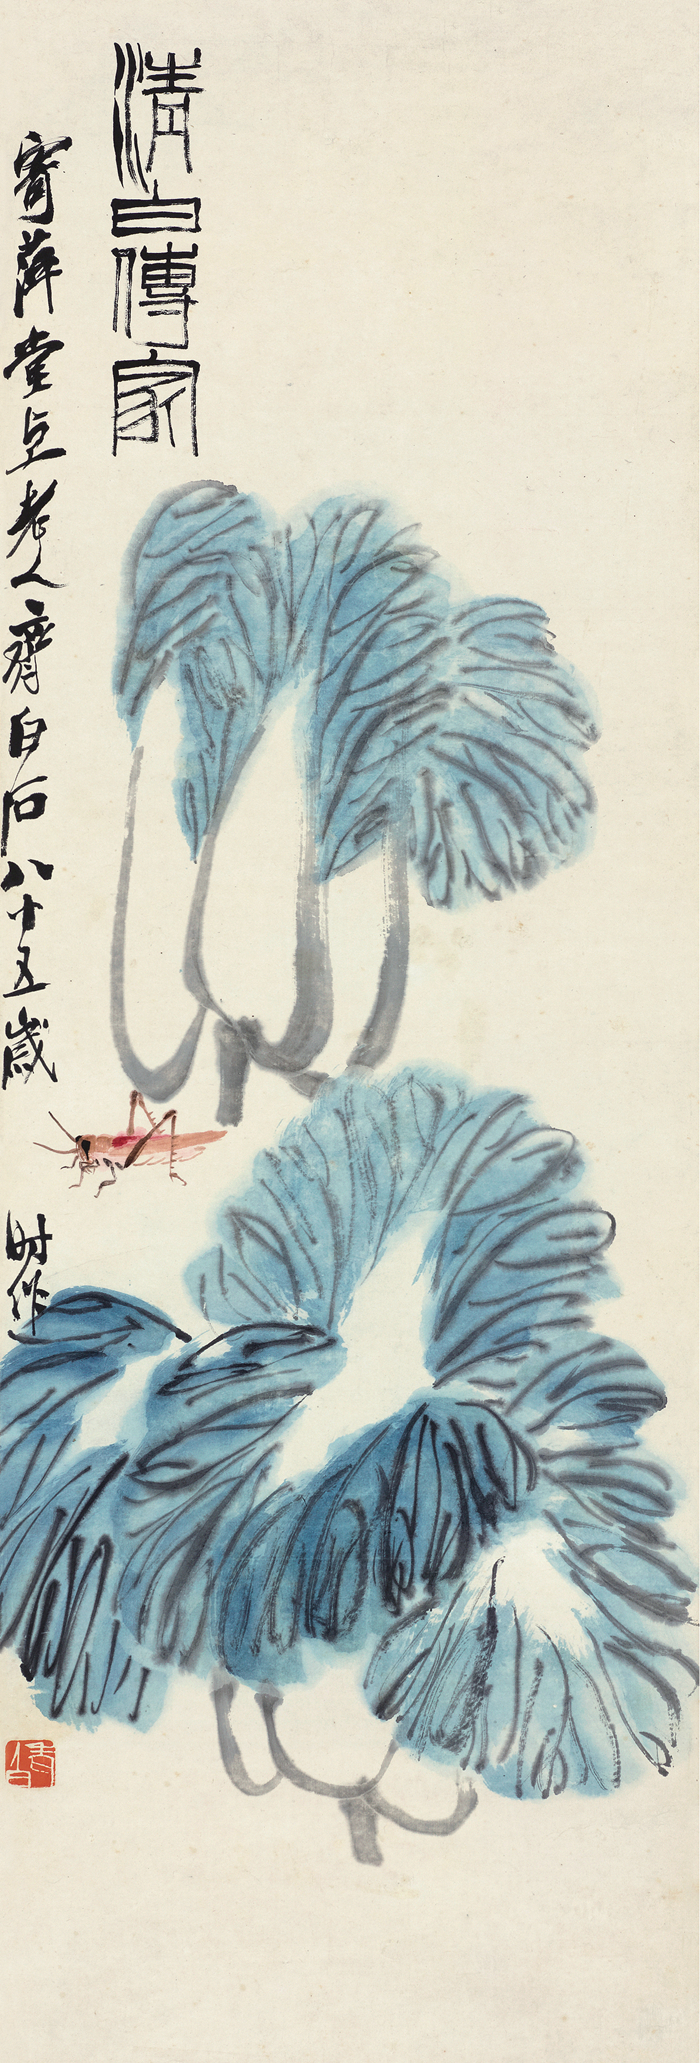 清白傳家
寄萍堂上老人齊白石八十五歲时作